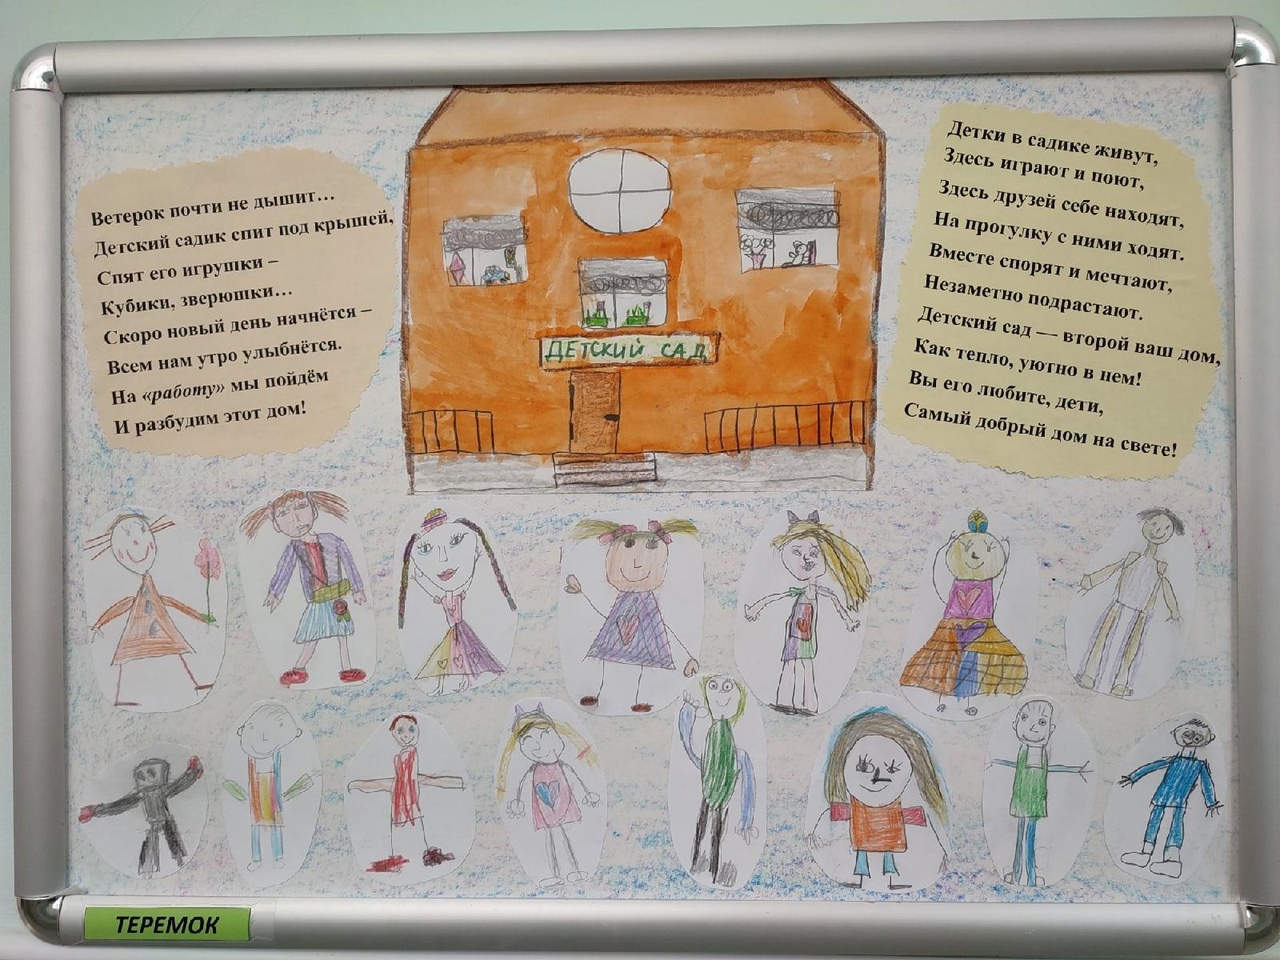 Ветерок почти не дышит…
Детский садик спит под крышей,
Спят его игрушки –
Кубики, зверюшки…
Скоро новый день начнётся –
Всем нам утро улыбнётся.
На «работу» мы пойдём
И разбудим этот дом!
ДЕТСКИЙ САД
Детки в садике живут,
Здесь играют и поют,
Здесь друзей себе находят,
На прогулку с ними ходят.
Вместе спорят и мечтают,
Незаметно подрастают.
Детский сад — второй ваш дом,
Как тепло, уютно в нем!
Вы его любите, дети,
Самый добрый дом на свете!
ТЕРЕМОК